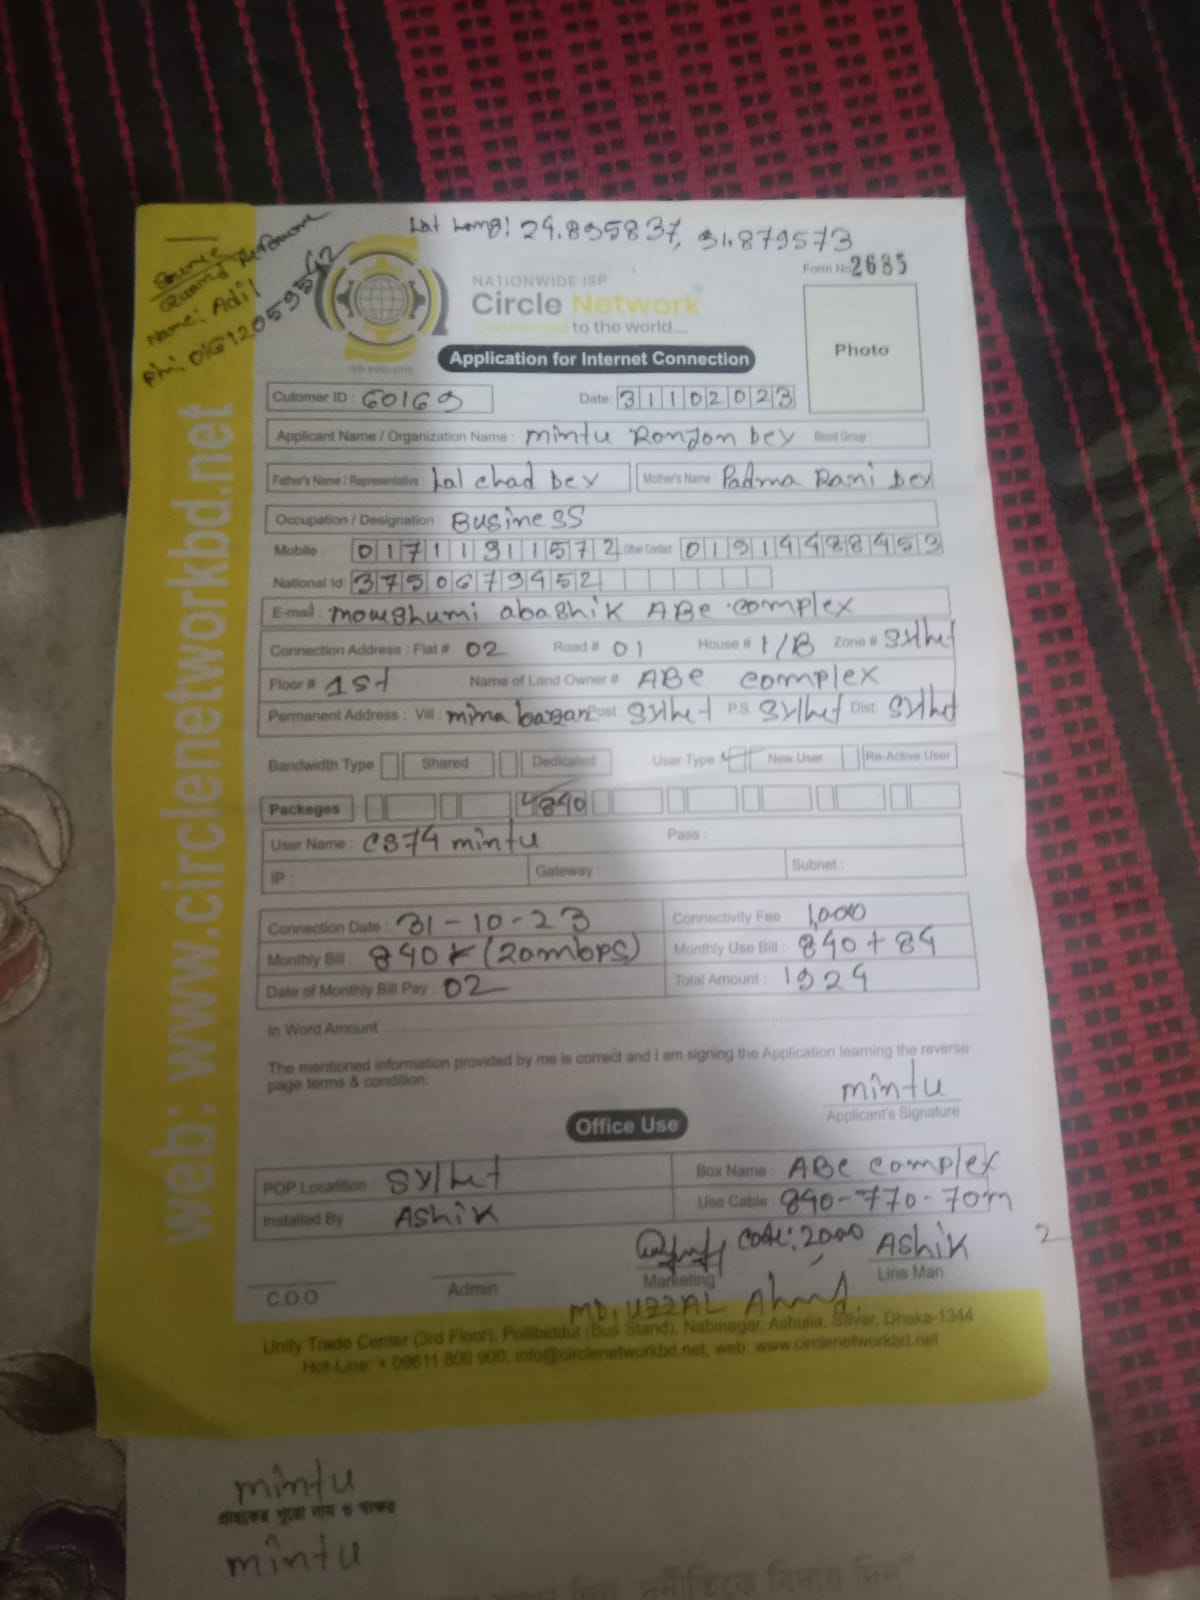 Lat Long: 24.895837, 91.879573
Source
Name: Adil
NATIONWIDE ISP
Form No 2685
Circle Network
Connected to the world.....
Photo
Application for Internet Connection
Cutomer ID : 60169 Date: 31102023
Applicant Name / Organization Name : mintu Ronjon Dey Blood Group :
Father's Name / Representative : Lal chad Dey Mother's Name : Padma Rani Dey
Occupation / Designation : Business
Mobile : 01711311572 Other Contact 01914488453
National Id: 3750679452
E-mail : moushumi abashik ABC complex
Connection Address : Flat # 02 Road # 01 House # 1/B Zone # Sylhet
Floor # 1st Name of Land Owner # ABC complex
Permanent Address : Vill : mina bazar Post : Sylhet P.S. Sylhet Dist: Sylhet
Bandwidth Type Shared Dedicated User Type New User Re-Active User
Packeges 840
User Name : c374 mintu Pass :
IP : Gateway : Subnet :
Connection Date : 31-10-23 Connectivity Fee : 1,000
Monthly Bill : 840 (20mbps) Monthly Use Bill : 840 + 84
Date of Monthly Bill Pay : 02 Total Amount : 1924
In Word Amount
The mentioned information provided by me is correct and I am signing the Application learning the reverse
page terms & condition.
mintu
Applicant's Signature
Office Use
POP Locatition : Sylhet Box Name : ABC complex
Installed By Ashik Use Cable : 840-770-70m
code: 2000 Ashik
C.O.O Admin Marketing Line Man
MD, UZZAL Ahmed
Unity Trade Center (3rd Floor), Pollibiddut (Bus Stand), Nabinagar, Ashulia, Savar, Dhaka-1344
Hot-Line: + 09611 800 900, info@circlenetworkbd.net, web: www.circlenetworkbd.net
web: www.circlenetworkbd.net
mintu
গ্রাহকের পুরো নাম ও স্বাক্ষর
mintu